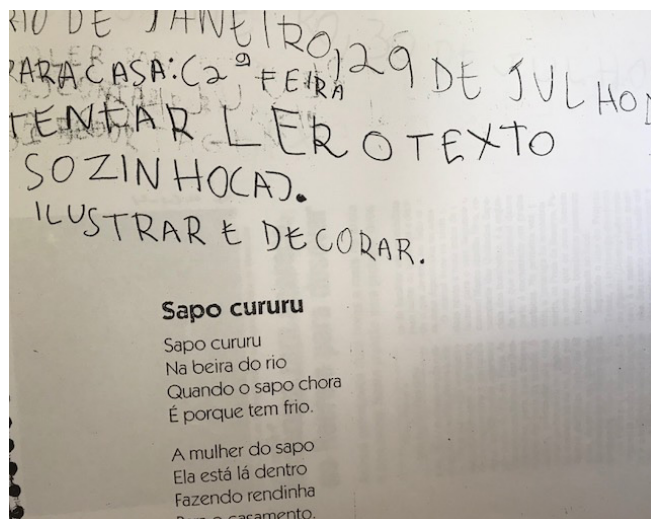 RIO DE JANEIRO, 29 DE JULHO D
PARA CASA: (2ª FEIRA
TENTAR LER O TEXTO
SOZINHO(A).
ILUSTRAR E DECORAR.
Sapo cururu
Sapo cururu
Na beira do rio
Quando o sapo chora
É porque tem frio.
A mulher do sapo
Ela está lá dentro
Fazendo rendinha
casamento.